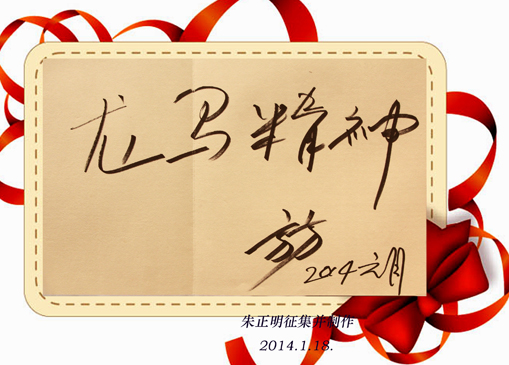 龙马精神
2014元月
朱正明征集并制作
2014.1.18.